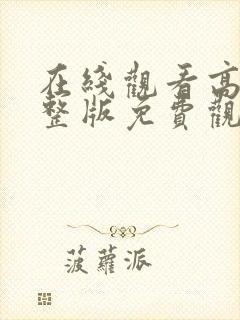 在綫觀看高
整版免費觀
菠蘿派